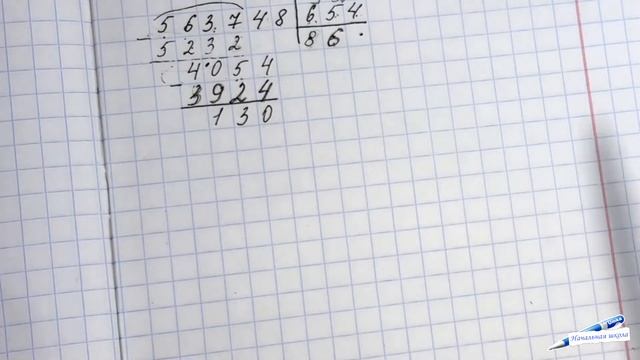 563748 654
5232 86
4054
3924
130
Начальная школа